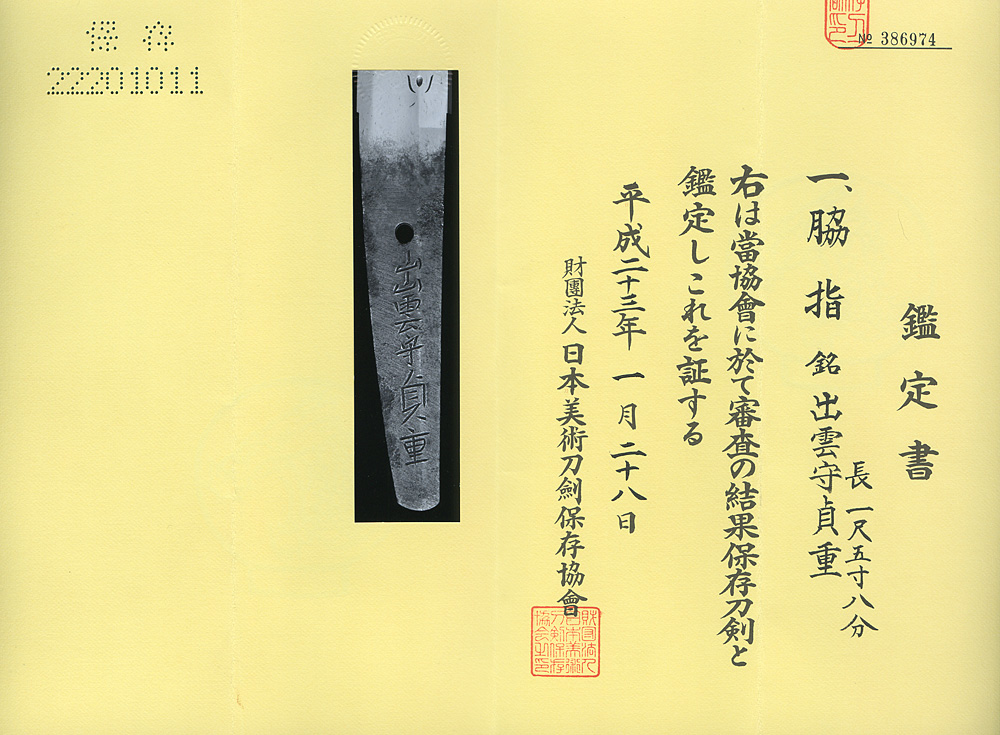 保存
22201011
№ 386974
鑑定書
一、脇指 銘 出雲守貞重
長一尺五寸八分
右は當協會に於て審査の結果保存刀劍と
鑑定しこれを証する
平成二十三年一月二十八日
財團法人日本美術刀劍保存協會
出雲守貞重